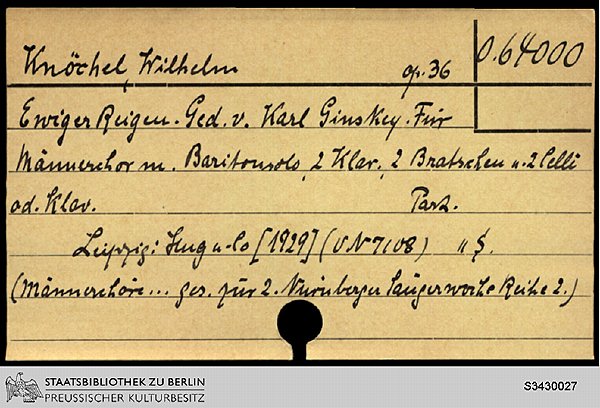 Knöchel, Wilhelm op. 36 O.64000
Ewiger Reigen. Ged. v. Karl Ginskey. Für
Männerchor m. Baritonsolo, 2 Klar., 2 Bratschen u. 2 Celli
od. Klav. Part.
Leipzig: Hug u. Co [1929] (VN 7108)
(Männerchöre... ges. für 2. Nürnberger Sängerwoche Reihe 2.)
STAATSBIBLIOTHEK ZU BERLIN
PREUSSISCHER KULTURBESITZ
S3430027